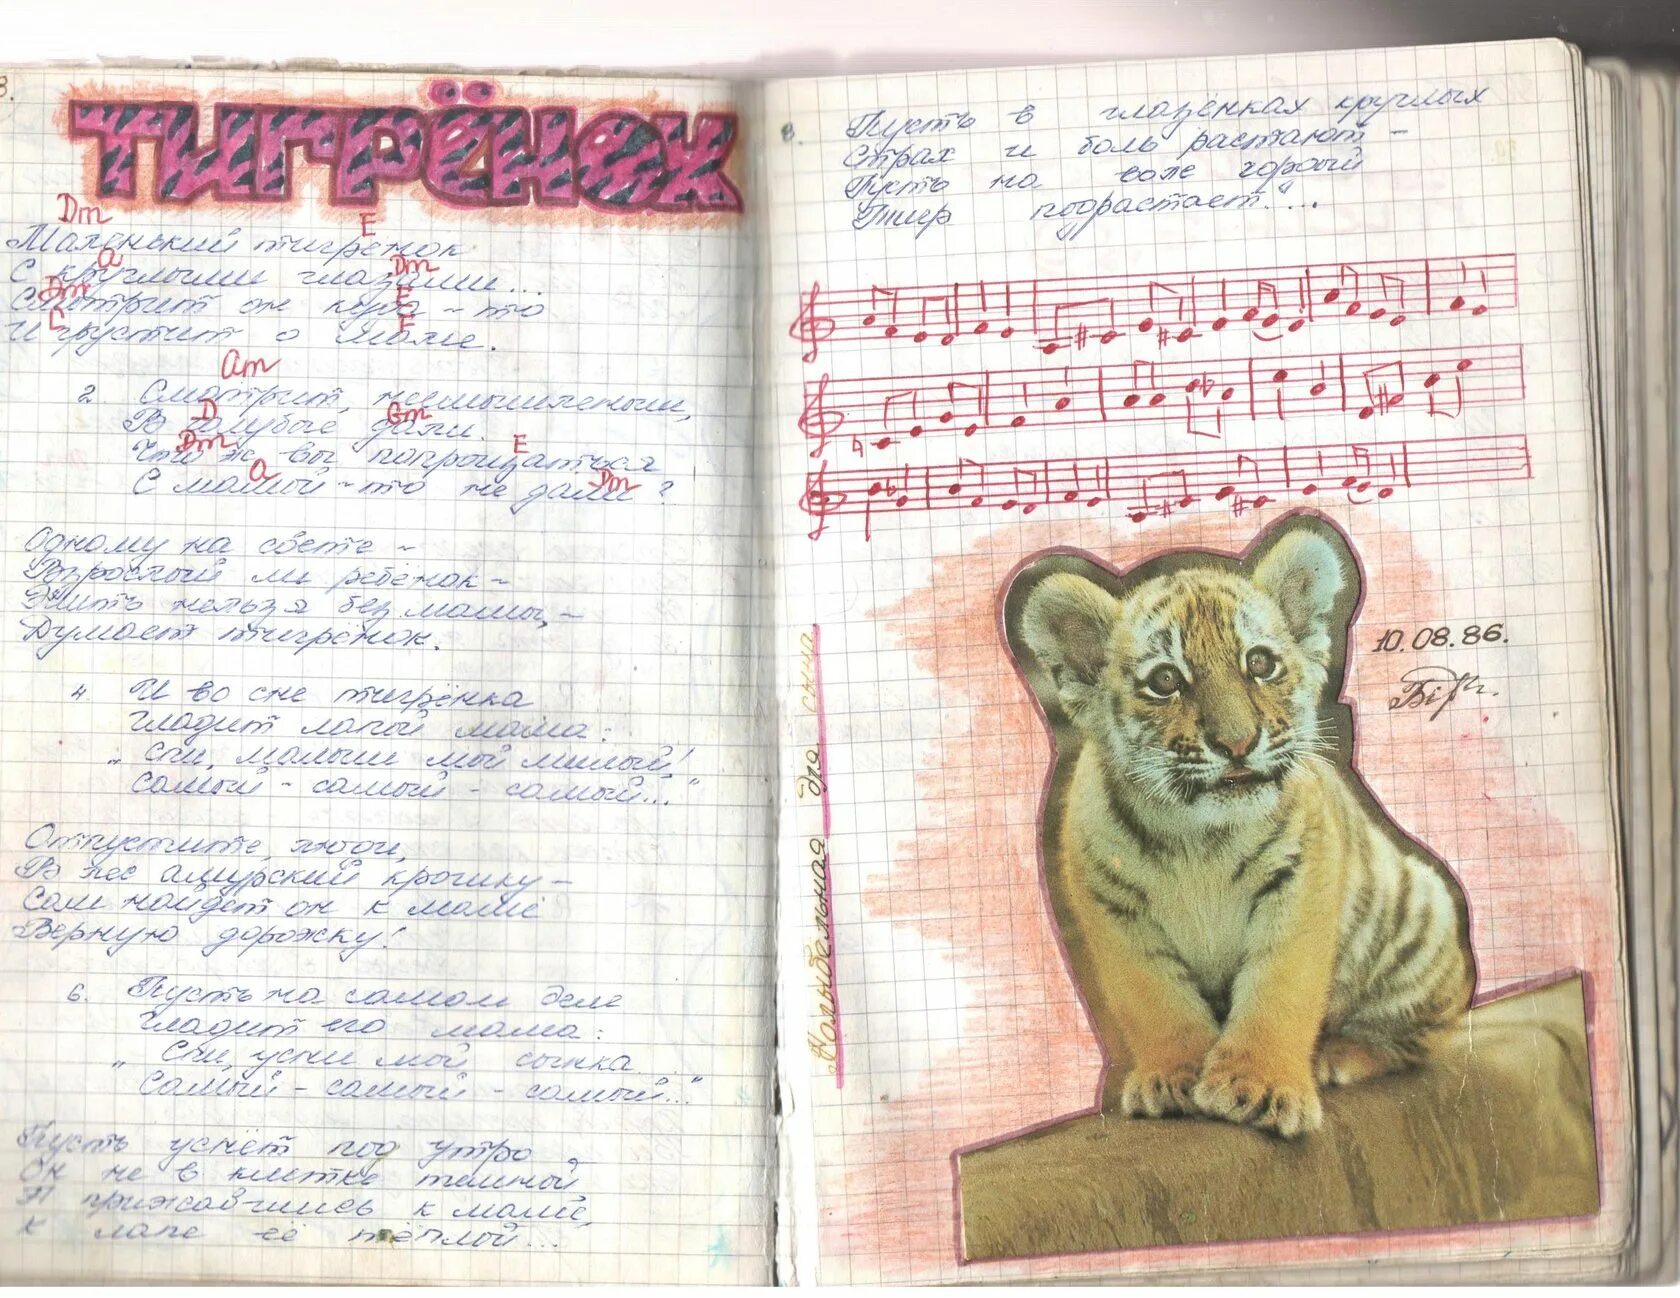 ТИГРЁНОК
Dm E
Маленький тигрёнок
A Dm
С круглыми глазами...
Dm E
Смотрит он куда-то
И грустит о маме.
Am
2. Смотрит, немышленыш,
D Gm
В голубые дали.
Dm E
Что ж вы попрощаться
A Dm
С мамой-то не дали?
Одному на свете -
Взрослый ли, ребёнок -
Жить нельзя без мамы, -
Думает тигрёнок.
4. И во сне тигрёнка
гладит лапой мама:
„Спи, малыш мой милый!
Самый - самый - самый..."
Отпустите, люди,
В лес амурский крошку -
Сам найдёт он к маме
Верную дорожку!
6. Пусть на самом деле
гладит его мама:
„Спи, усни мой сынка
Самый - самый - самый..."
Пусть уснёт под утро
Он не в клетке тёмной
А прижавшись к маме,
К лапе её тёплой...
8. Пусть в глазёнках круглых
Страх и боль растают -
Пусть на воле гордый
Тигр подрастает"...
Колыбельная для сына
10.08.86.